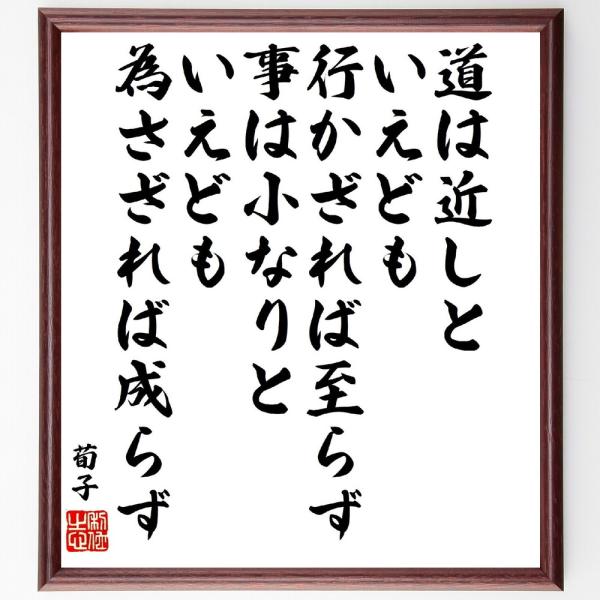 道は近しと
いえども
行かざれば至らず
事は小なりと
いえども
為さざれば成らず
荀子